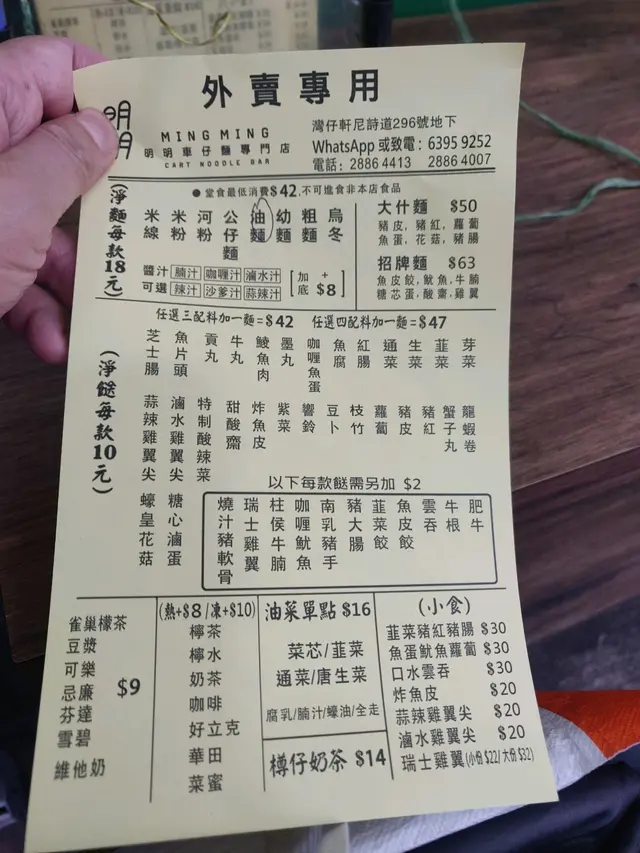 外賣專用
明明
MING MING
明明車仔麵專門店
CART NOODLE BAR
灣仔軒尼詩道296號地下
WhatsApp 或致電: 6395 9252
電話: 2886 4413 2886 4007
●堂食最低消費$42,不可進食非本店食品
(淨麵每款18元)
米線 米粉 河粉 公仔麵 油麵 幼麵 粗麵 烏冬
醬汁可選 腩汁 咖喱汁 滷水汁 辣汁 沙爹汁 蒜辣汁 [加底 +$8]
大什麵 $50
豬皮,豬紅,蘿蔔
魚蛋,花菇,豬腸
招牌麵 $63
魚皮餃,魷魚,牛腩
糖芯蛋,酸齋,雞翼
任選三配料加一麵=$42 任選四配料加一麵=$47
(淨餸每款10元)
芝士腸 魚片頭 貢丸 牛丸 鯪魚肉 墨丸 咖喱魚蛋 魚腐 紅腸 通菜 生菜 韮菜 芽菜
蒜辣雞翼尖 滷水雞翼尖 特制酸辣菜 甜酸齋 炸魚皮 紫菜 響鈴 豆卜 枝竹 蘿蔔 豬皮 豬紅 蟹子丸 龍蝦卷
蠔皇花菇 糖心滷蛋
以下每款餸需另加 $2
燒汁豬軟骨 瑞士雞翼 柱侯牛腩 咖喱魷魚 南乳豬手 豬大腸 韮菜餃 魚皮餃 雲吞 牛根 肥牛
雀巢檬茶
豆漿
可樂
忌廉 $9
芬達
雪碧
維他奶
(熱+$8/凍+$10)
檸茶
檸水
奶茶
咖啡
好立克
華田
菜蜜
油菜單點 $16
菜芯/韮菜
通菜/唐生菜
腐乳/腩汁/蠔油/全走
樽仔奶茶 $14
(小食)
韮菜豬紅豬腸 $30
魚蛋魷魚蘿蔔 $30
口水雲吞 $30
炸魚皮 $20
蒜辣雞翼尖 $20
滷水雞翼尖 $20
瑞士雞翼(小份$22/大份$32)